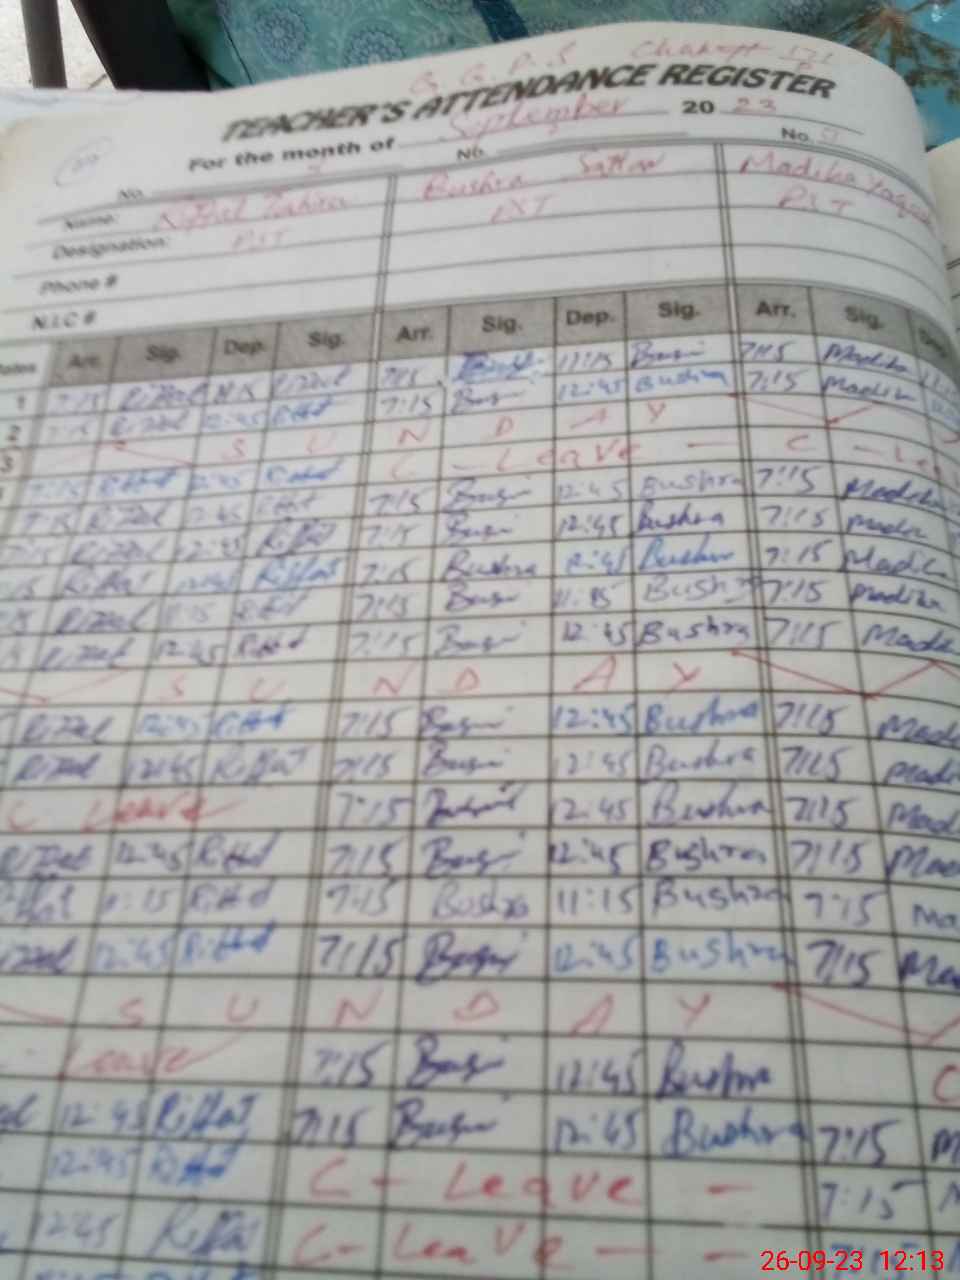 G.G.P.S Chak
TEACHER'S ATTENDANCE REGISTER
For the month of September 20 23
No. No. No.
Name: Riffat Zahira Bushra Sattar Madiha Yaqoob
Designation: PST PST PST
Phone #
N.I.C #
Dates Arr. Sig. Dep. Sig. Arr. Sig. Dep. Sig. Arr. Sig. Dep.
1 7:15 Riffat 11:15 Riffat 7:15 Bushra 11:15 Bushra 7:15 Madiha
2 7:15 Riffat 12:45 Riffat 7:15 Bushra 12:45 Bushra 7:15 Madiha
3 S U N D A Y
7:15 Riffat 12:45 Riffat C - Leave - C - Lea
7:15 Riffat 12:45 Riffat 7:15 Bushra 12:45 Bushra 7:15 Madiha
7:15 Riffat 12:45 Riffat 7:15 Bushra 12:45 Bushra 7:15 Madiha
7:15 Riffat 12:45 Riffat 7:15 Bushra 12:45 Bushra 7:15 Madiha
7:15 Riffat 11:15 Riffat 7:15 Bushra 11:15 Bushra 7:15 Madiha
Riffat 12:45 Riffat 7:15 Bushra 12:45 Bushra 7:15 Madiha
S U N D A Y
Riffat 12:45 Riffat 7:15 Bushra 12:45 Bushra 7:15 Madi
Riffat 12:45 Riffat 7:15 Bushra 12:45 Bushra 7:15 Madi
C Leave 7:15 Bushra 12:45 Bushra 7:15 Mad
Riffat 12:45 Riffat 7:15 Bushra 12:45 Bushra 7:15 Mad
Riffat 11:15 Riffat 7:15 Bushra 11:15 Bushra 7:15 Ma
Riffat 12:45 Riffat 7:15 Bushra 12:45 Bushra 7:15 Ma
S U N D A Y
Leave 7:15 Bushra 12:45 Bushra C
12:45 Riffat 7:15 Bushra 12:45 Bushra 7:15 M
12:45 Riffat C - Leave - 7:15 M
12:45 Riffat C - Leave - - 7:15
26-09-23 12:13